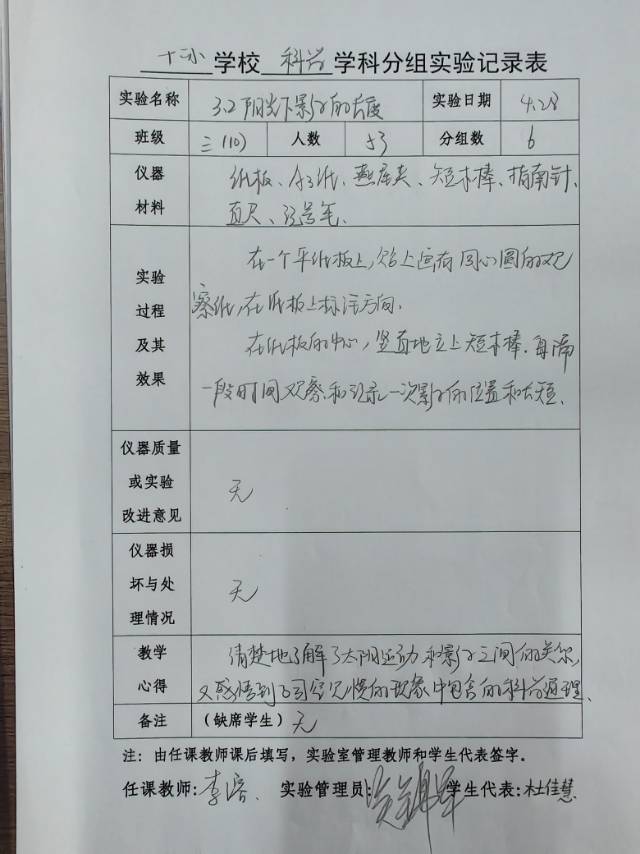 十小学校科学学科分组实验记录表
实验名称 3.2阳光下影子的长度 实验日期 4.28
班级 三(10) 人数 53 分组数 6
仪器材料 纸板、A3纸、燕尾夹、短木棒、指南针、
直尺、记号笔.
实验过程及其效果 在一个平纸板上,贴上画有同心圆的观
察纸,在纸板上标注方向.
在纸板的中心,竖直地立上短木棒.每隔
一段时间观察和记录一次影子的位置和长短.
仪器质量或实验改进意见 无
仪器损坏与处理情况 无
教学心得 清楚地了解了太阳运动和影子之间的关系,
又感悟到了司空见惯的现象中包含的科学道理.
备注 (缺席学生) 无
注：由任课教师课后填写，实验室管理教师和学生代表签字。
任课教师: 李 实验管理员: 学生代表: 杜佳慧